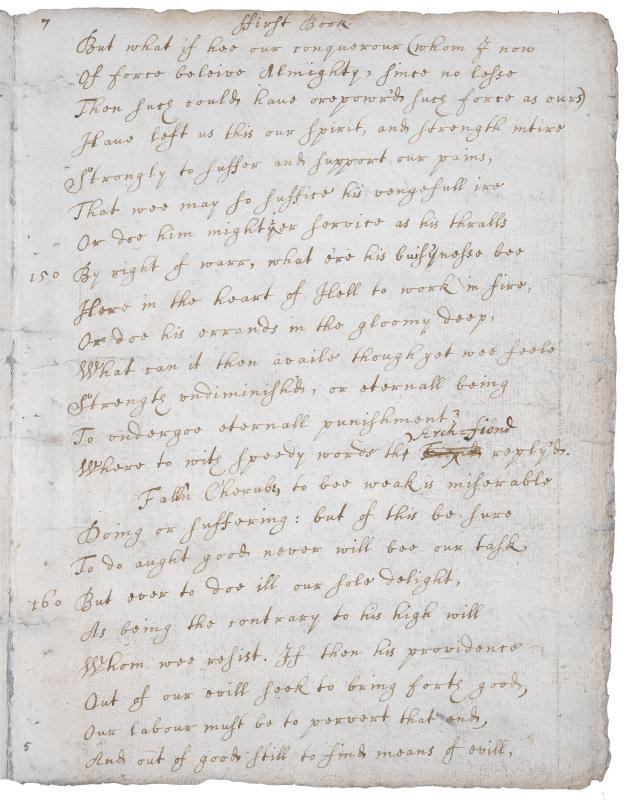 7 ffirst Book.
But what if hee our conquerour (whom I now
Of force beleive Almighty, since no lesse
Then such could have orepowr'd such force as ours)
Have left us this our spirit, and strength intire
Strongly to suffer and support our pains,
That wee may so suffice his vengefull ire
Or doe him mightyer service as his thralls
150 By right of warr, what ere his busynesse bee
Here in the heart of Hell to work in fire,
Or doe his errands in the gloomy deep,
What can it then availe though yet wee feele
Strength vndiminish'd, or eternall being
To vndergoe eternall punishment?
Arch-fiend
Where to with speedy words the reply'd.
Fall'n Cherub, to bee weak is miserable
Doing or suffering: but of this be sure
To do aught good never will bee our task
160 But ever to doe ill our sole delight,
As being the contrary to his high will
Whom wee resist. If then his providence
Out of our evill seek to bring forth good,
Our labour must be to pervert that end,
5 And out of good still to find means of evill,